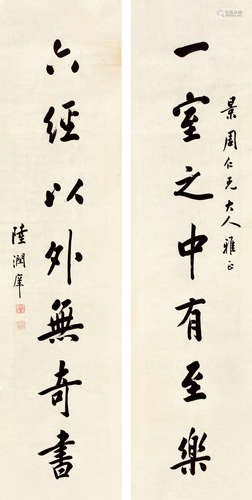 一室之中有至樂
景周仁兄大人雅正
六經以外無奇書
陸潤庠